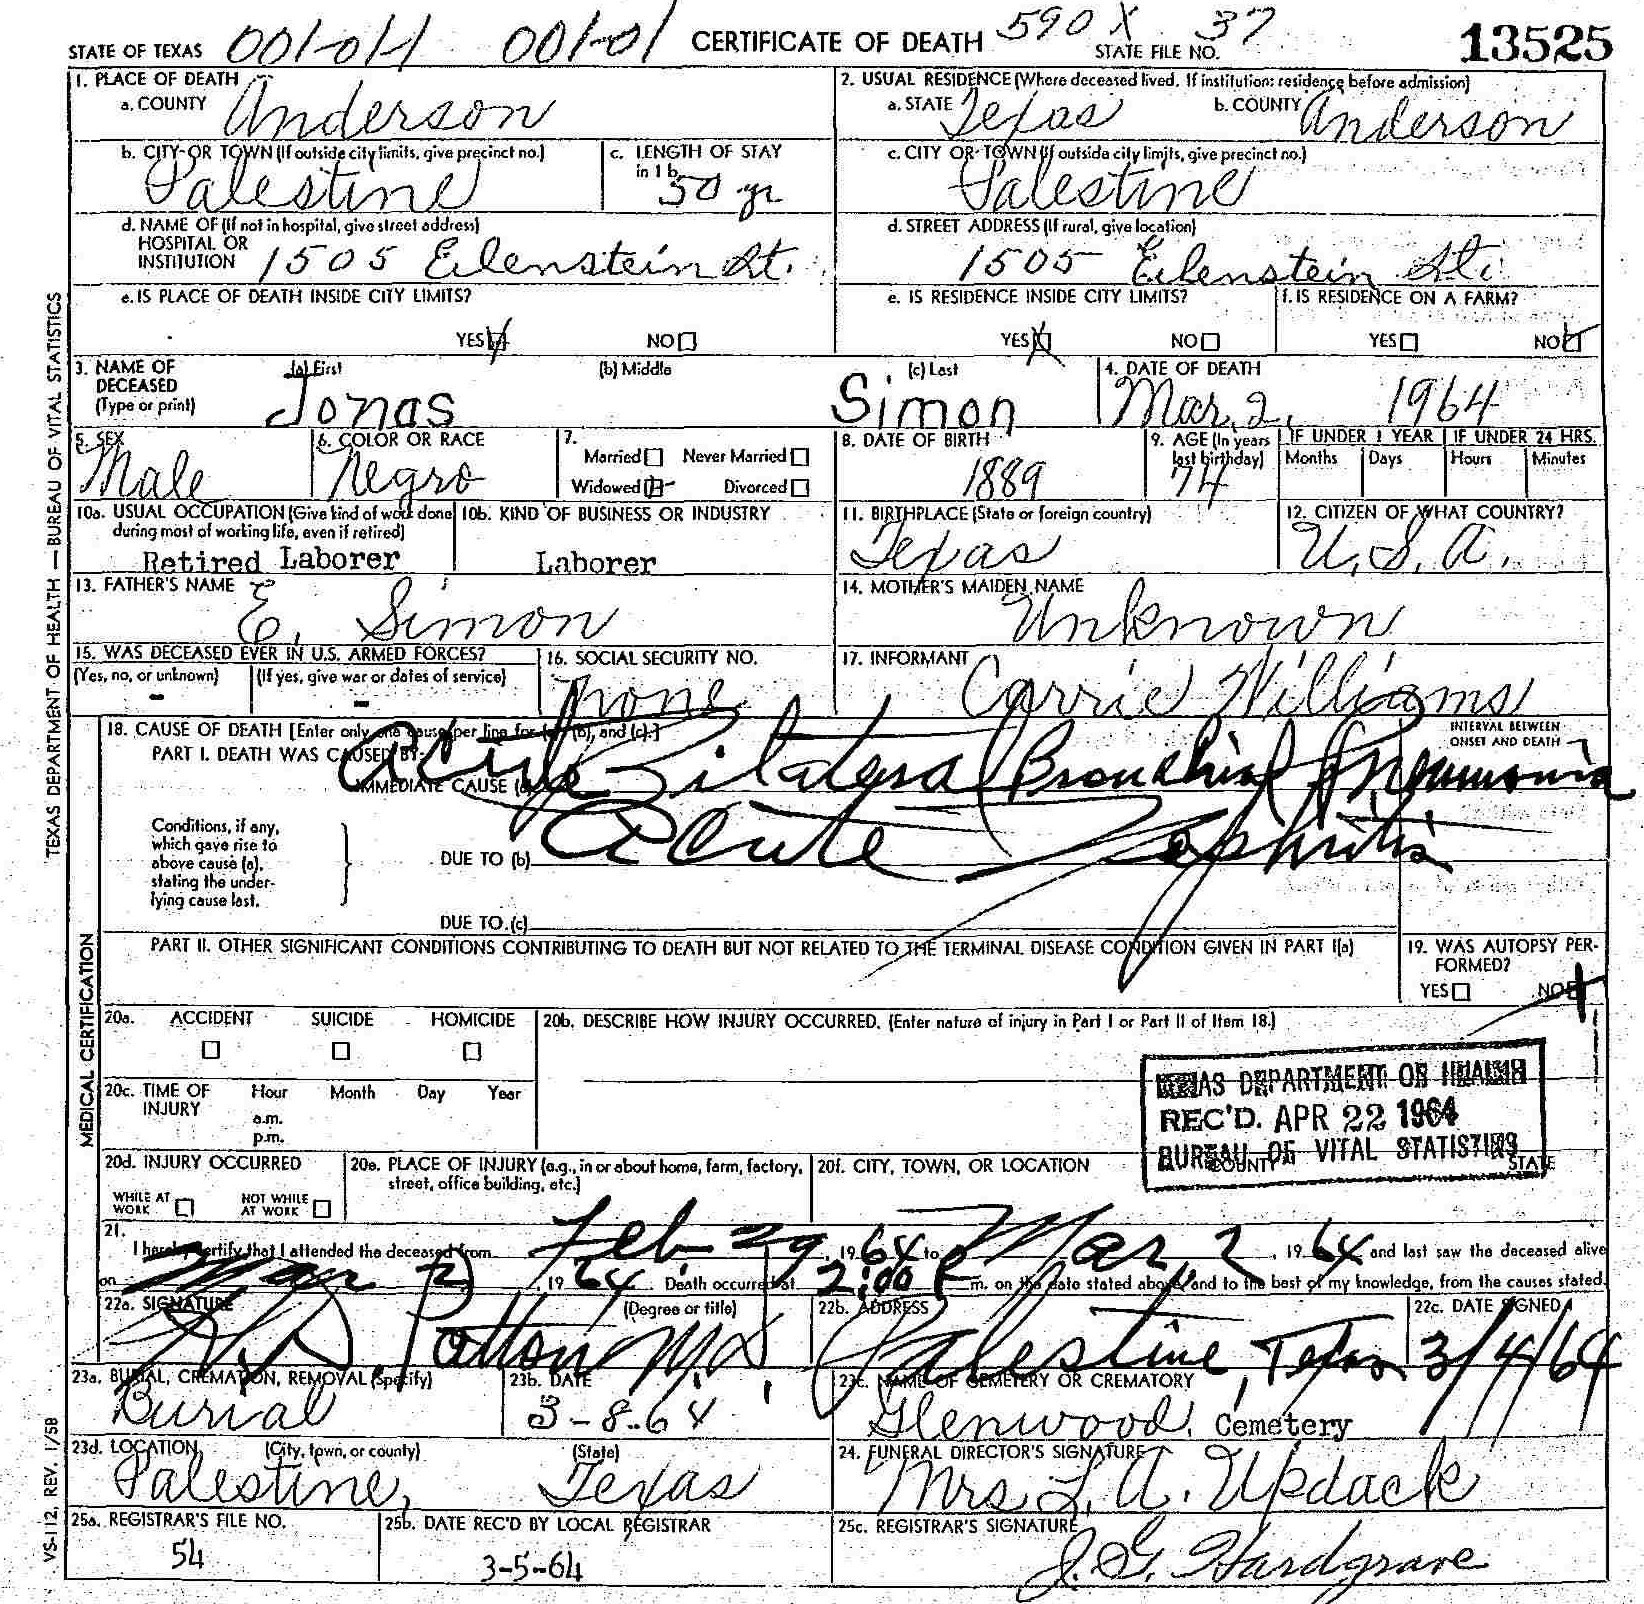 STATE OF TEXAS 001-04 001-01 CERTIFICATE OF DEATH 590 X 37 STATE FILE NO. 13525
1. PLACE OF DEATH
a. COUNTY Anderson
2. USUAL RESIDENCE (Where deceased lived. If institution: residence before admission)
a. STATE Texas b. COUNTY Anderson
b. CITY OR TOWN (If outside city limits, give precinct no.) Palestine
c. LENGTH OF STAY in 1 b 50 yr
c. CITY OR TOWN (If outside city limits, give precinct no.) Palestine
d. NAME OF (If not in hospital, give street address)
HOSPITAL OR
INSTITUTION 1505 Eilenstein St.
d. STREET ADDRESS (If rural, give location)
1505 Eilenstein St.
e. IS PLACE OF DEATH INSIDE CITY LIMITS?
YES NO
e. IS RESIDENCE INSIDE CITY LIMITS?
YES NO
f. IS RESIDENCE ON A FARM?
YES NO
3. NAME OF DECEASED (Type or print)
(a) First Jonas
(b) Middle
(c) Last Simon
4. DATE OF DEATH
Mar. 2, 1964
5. SEX Male
6. COLOR OR RACE Negro
7. Married Never Married
Widowed Divorced
8. DATE OF BIRTH 1889
9. AGE (In years last birthday) 74
IF UNDER 1 YEAR Months Days
IF UNDER 24 HRS. Hours Minutes
10a. USUAL OCCUPATION (Give kind of work done
during most of working life, even if retired)
Retired Laborer
10b. KIND OF BUSINESS OR INDUSTRY
Laborer
11. BIRTHPLACE (State or foreign country)
Texas
12. CITIZEN OF WHAT COUNTRY?
U.S.A.
13. FATHER'S NAME E. Simon
14. MOTHER'S MAIDEN NAME Unknown
15. WAS DECEASED EVER IN U.S. ARMED FORCES?
(Yes, no, or unknown) (If yes, give war or dates of service)
- -
16. SOCIAL SECURITY NO. none
17. INFORMANT Carrie Williams
MEDICAL CERTIFICATION
18. CAUSE OF DEATH [Enter only one cause per line for (a), (b), and (c).]
INTERVAL BETWEEN
ONSET AND DEATH
PART I. DEATH WAS CAUSED BY:
IMMEDIATE CAUSE (a) Acute Bilateral Bronchial Pneumonia
Conditions, if any,
which gave rise to
above cause (a),
stating the under-
lying cause last.
DUE TO (b) Acute Nephritis
DUE TO (c)
PART II. OTHER SIGNIFICANT CONDITIONS CONTRIBUTING TO DEATH BUT NOT RELATED TO THE TERMINAL DISEASE CONDITION GIVEN IN PART I(a)
19. WAS AUTOPSY PER-
FORMED?
YES NO
20a. ACCIDENT SUICIDE HOMICIDE
20b. DESCRIBE HOW INJURY OCCURRED. (Enter nature of injury in Part I or Part II of Item 18.)
20c. TIME OF INJURY Hour Month Day Year
a.m.
p.m.
TEXAS DEPARTMENT OF HEALTH
REC'D. APR 22 1964
BUREAU OF VITAL STATISTICS
20d. INJURY OCCURRED
WHILE AT WORK NOT WHILE AT WORK
20e. PLACE OF INJURY (e.g., in or about home, farm, factory,
street, office building, etc.)
20f. CITY, TOWN, OR LOCATION COUNTY STATE
21.
I hereby certify that I attended the deceased from Feb. 29, 1964 to Mar. 2, 1964 and last saw the deceased alive
on Mar 2, 1964. Death occurred at 2:00 P m. on the date stated above, and to the best of my knowledge, from the causes stated.
22a. SIGNATURE (Degree or title) Patton M.D.
22b. ADDRESS Palestine, Texas
22c. DATE SIGNED 3/4/64
23a. BURIAL, CREMATION, REMOVAL (Specify) Burial
23b. DATE 3-8-64
23c. NAME OF CEMETERY OR CREMATORY
Glenwood Cemetery
23d. LOCATION (City, town, or county) (State)
Palestine, Texas
24. FUNERAL DIRECTOR'S SIGNATURE
Mrs L. A. Updack
25a. REGISTRAR'S FILE NO.
54
25b. DATE REC'D BY LOCAL REGISTRAR
3-5-64
25c. REGISTRAR'S SIGNATURE
J. G. Hardgrave
TEXAS DEPARTMENT OF HEALTH — BUREAU OF VITAL STATISTICS
VS-112, REV. 1/58